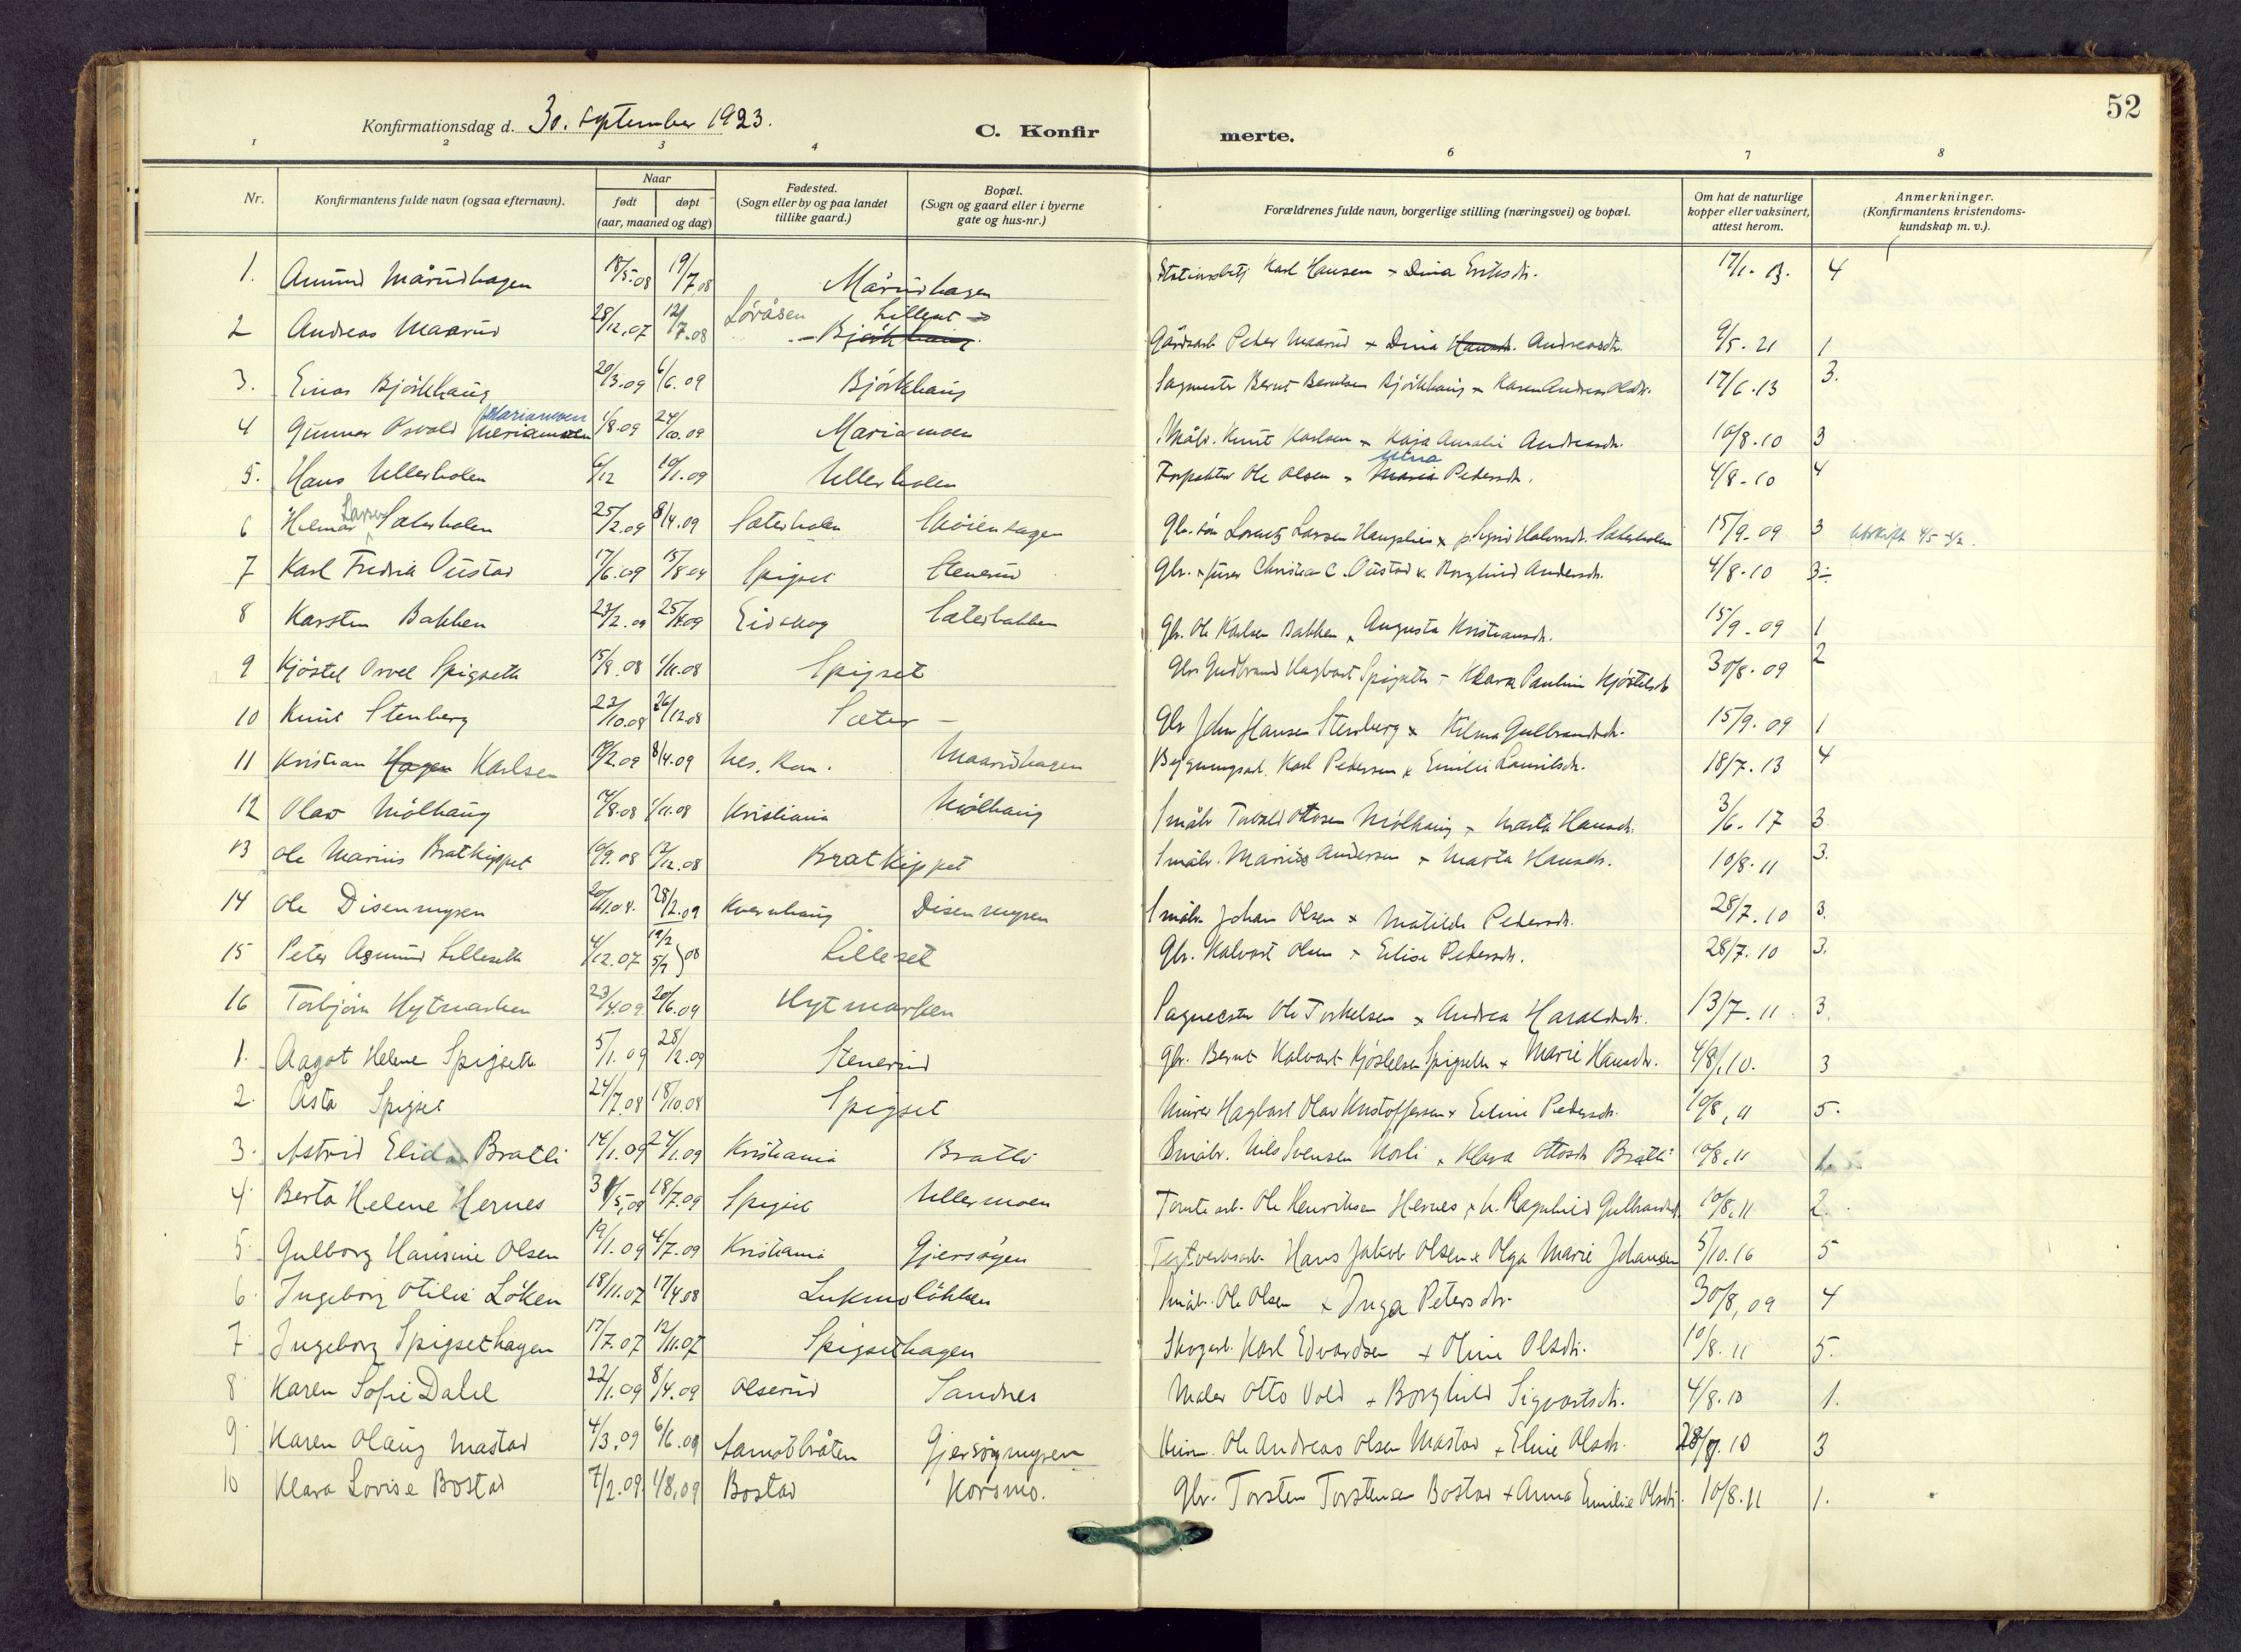 52
Konfirmationsdag d. 30. september 1923.
C. Konfirmerte.
1 2 3 4 6 7 8
Nr. Konfirmantens fulde navn (ogsaa efternavn). Naar født døpt (aar, maaned og dag) Fødested. (Sogn eller by og paa landet tillike gaard.) Bopæl. (Sogn og gaard eller i byerne gate og hus-nr.) Forældrenes fulde navn, borgerlige stilling (næringsvei) og bopæl. Om hat de naturlige kopper eller vaksinert, attest herom. Anmerkninger. (Konfirmantens kristendomskundskap m. v.).
1. Amund Mårudhagen 18/5.08 19/7.08 Mårudhagen Karl Hansen + Dina Eriksdtr. 17/1. 13. 4
2 Andreas Maarud 28/12.07 12/7.08 Löråsen Lilleset Björkhaug Gårdsarb. Peter Maarud + Dina Hansdtr. Andreasdtr. 9/5. 21 1
3. Einar Björkhaug 20/3.09 6/6.09 Björkhaug Sagmester Bernt Berntsen Björkhaug + Karen Andrea Olsdtr. 17/6.13 3.
4 Gunnar Osvald Meriamoen Mariamoen 1/8.09 24/10.09 Mariamoen Småbr. Knut Karlsen + Kaja Amalie Andreasdtr. 10/8.10 3
5. Hans Ullerholen 6/12 10/1.09 Ullerholen Forpakter Ole Olsen + Maria Mina Pedersdtr. 4/8-10 4
6 Hilmar Larsen Sæterholen 25/2.09 8/4.09 Sæterholen Skåienhagen Gbr. sön Lorentz Larsen Haugslien + p. Sigrid Halvorsdtr. Sæterholen 15/9-09 3 Utskrift 4/5
7 Karl Fredrik Oustad 17/6.09 15/8.09 Spigset Stenerud Gbr. + Christian C. Oustad + Borghild Andersdtr. 4/8-10 3÷
8 Karsten Bakken 23/2.09 25/4.09 Eidskog Sæterbakken Gbr. Ole Karlsen Bakken + Augusta Kristiansdtr. 15/9-09 1
9 Kjöstel Orvel Spigseth 15/8.08 1/11.08 Spigset Gbr. Gudbrand Hagbart Spigseth - Klara Pauline Kjöstelsdtr 30/8-09 2
10 Knut Stenberg 22/10.08 26/12.08 Sæter - Gbr John Hansen Stenberg + Hilma Gulbrandsdtr. 15/9.09 1
11 Kristian Hagen Karlsen 10/2.09 8/4.09 Nes, Rom. Maarudhagen Bygningsarb. Karl Pedersen + Emilie Lauritsdtr. 18/7.13 4
12 Olav Mölhaug 14/8.08 1/11.08 Kristiania Mölhaug Småbr Torvald Ottosen Mölhaug + Marta Hansdtr. 3/6.17 3
13 Ole Marius Bratkippet 10/9.08 12/12.08 Bratkippet Småbr. Marius Andersen + Marta Hansdtr. 10/8.11 3.
14 Ole Disenmyren 20/11.08. 28/2.09 Kvernhaug Disenmyren Småbr. Johan Olsen + Matilde Pedersdtr. 28/7.10 3.
15 Peter Asmund Lilleseth 4/12.07 19/2 5/7 } 08 Lilleset Gbr. Halvart Olsen + Elise Pedersdtr. 28/7.10 3.
16 Torbjörn Hytmarken 23/4.09 20/6.09 Hytmarken Sagmester Ole Torkelsen + Andrea Haraldsdtr. 13/7.11 3.
1. Aagot Helene Spigseth 5/1.09 28/2.09 Stenerud Gbr. Bernt Halvart Kjöstelsen Spigseth + Marie Hansdtr. 4/8.10. 3
2. Åsta Spigset 24/7.08 18/10.08 Spigset Murer Hagbart Olav Kristoffersen + Eline Pedersdtr. 10/8,11 5.
3. Astrid Elida Bratli 14/1.09 24/1.09 Kristiania Bratli Småbr. Nils Svensen Norli + Klara Ottosdtr Bratli 10/8.11 1.
4. Berta Helene Hernes 3/5.09 18/7.09 Spigset Ullermoen Tomtearb. Ole Henriksen Hernes + h. Ragnhild Gulbrandsd. 10/8.11 2.
5. Gulborg Hansine Olsen 19/1.09 4/7.09 Kristiania Gjersöyen Teglverksarb. Hans Jakob Olsen + Olga Marie Johansen 5/10.16 5
6. Ingeborg Otilie Löken 18/11.07 17/4.08 Lukmolökken Småbr. Ole Olsen + Inga Petersdtr. 30/8,09 4
7. Ingeborg Spigsethagen 17/7.07 12/11.07 Spigsethagen Skogarb. Karl Edvardsen + Oline Olsdtr. 10/8.11 5.
8 Karen Sofie Dahl 22/1.09 8/4.09 Olserud Sandnes Maler Otto Vold + Borghild Sigvartsdtr. 4/8.10 1.
9 Karen Olaug Mastad 4/3.09 6/6.09 Samotbråten Gjersöymyren Ole Andreas Olsen Mastad + Eline Olsdtr. 28/7.10 3
10 Klara Lovise Bostad 7/2.09 1/8.09 Bostad Korsmo. Gbr. Torsten Torstensen Bostad + Anna Emilie Olsdtr. 10/8.11 1.